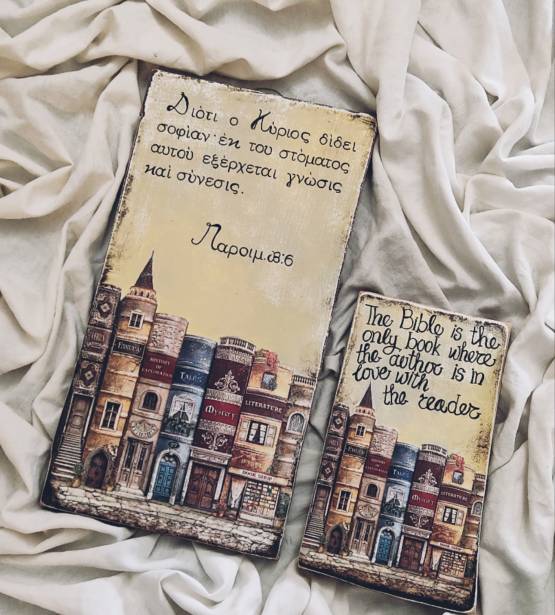 Διότι ο Κύριος δίδει
σοφίαν· εκ του στόματος
αυτού εξέρχεται γνώσις
καί σύνεσις.
Παροιμ.β:6
HISTORY
OF
TALES
LITERATURE
BOOK SHOP
The Bible is the
only book where
the author is in
love with
the reader
TALES
LITERATURE